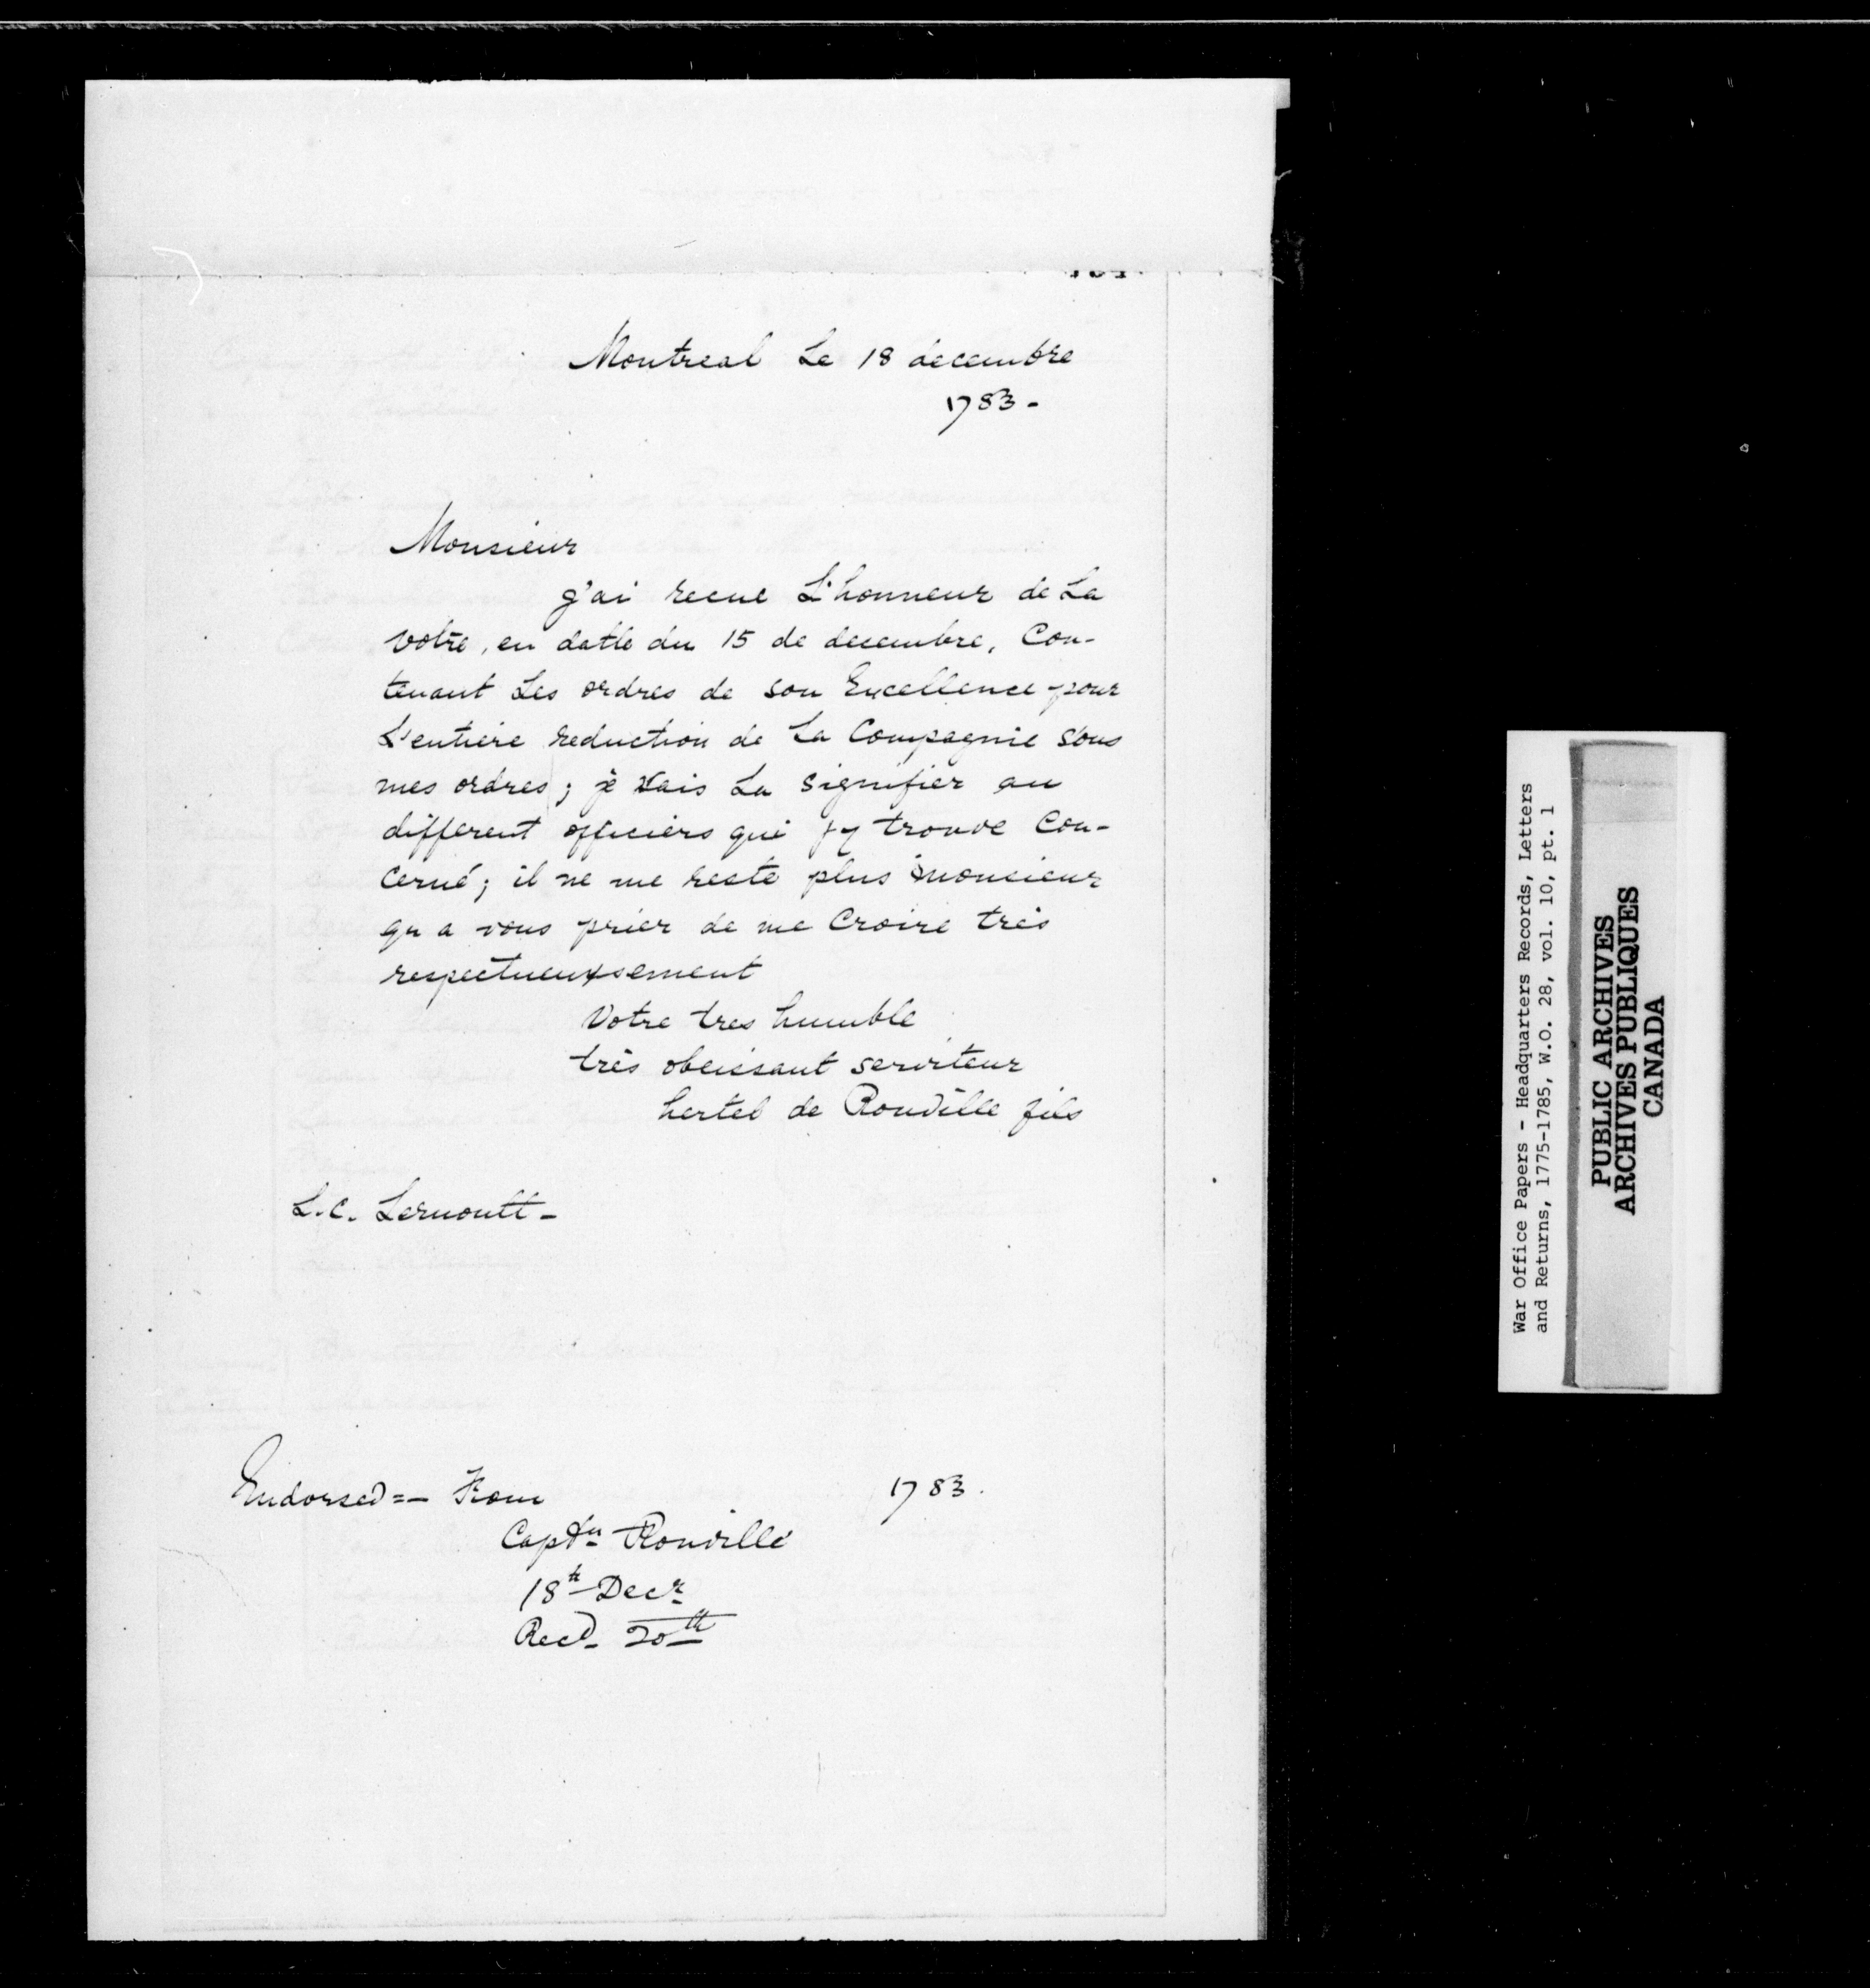 Montreal Le 18 decembre
1783-
Monsieur
j'ai recue L'honneur de La
votre, en datte du 15 de decembre, Con-
tenant Les ordres de son Excellence pour
L'entiere reduction de La Compagnie sous
mes ordres; je vais La signifier au
different officiers qui s'y trouve Con-
cerné; il ne me reste plus monsieur
qu a vous prier de me Croire très
respectueuxsement
Votre tres humble
très obeissant serviteur
hertel de Rouville fils
L.C. Lernoult-
Endorsed=- From 1783.
Captn Rouville
18th Decr
Recd 20th
War Office Papers - Headquarters Records, Letters
and Returns, 1775-1785, W.O. 28, vol. 10, pt. 1
PUBLIC ARCHIVES
ARCHIVES PUBLIQUES
CANADA